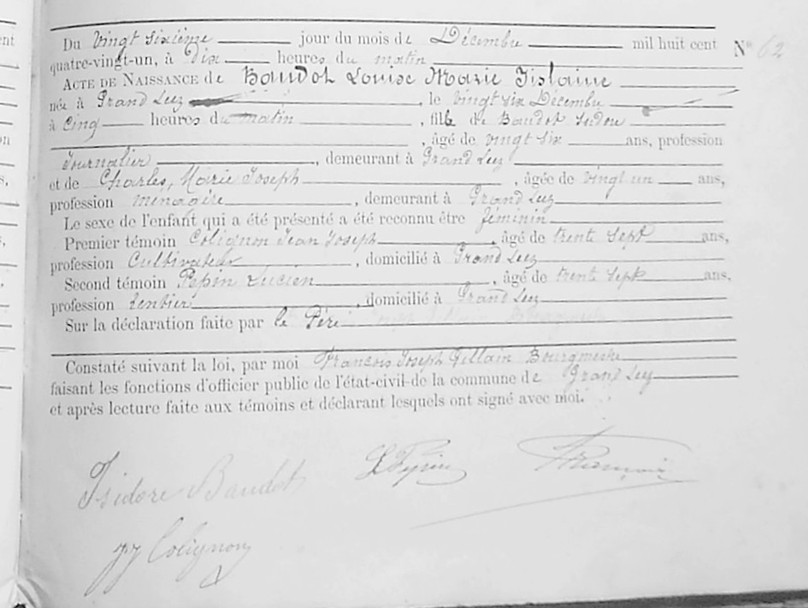 Du Vingt sixième jour du mois de Décembre mil huit cent N° 62
quatre-vingt-un, à Dix heures du matin
ACTE DE NAISSANCE de Baudot Louise Marie Gislaine
née à Grand Leez, le Vingt six Décembre
à Cinq heures du matin, fille de Baudot Isidore
, âgé de vingt six ans, profession
Journalier, demeurant à Grand Leez
et de Charles, Marie Joseph, âgée de vingt un ans,
profession ménagère, demeurant à Grand Leez
Le sexe de l'enfant qui a été présenté a été reconnu être féminin
Premier témoin Colignon Jean Joseph, âgé de trente sept ans,
profession Cultivateur, domicilié à Grand Leez
Second témoin Pepin Lucien, âgé de trente sept ans,
profession Rentier, domicilié à Grand Leez
Sur la déclaration faite par le Père
Constaté suivant la loi, par moi François Joseph Fillain Bourgmestre
faisant les fonctions d'officier public de l'état-civil de la commune de Grand Leez
et après lecture faite aux témoins et déclarant lesquels ont signé avec moi.
Isidore Baudot L Pepin
JJ Colignon